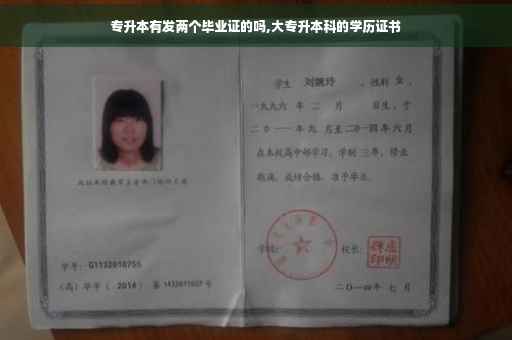 专升本有发两个毕业证的吗,大专升本科的学历证书
学生 刘婉玲 ，性别 女 ，
一九九六 年 二 月 日生，于
二〇一一年九 月至二〇一四年六月
在本校高中部学习，学制 三年，修业
期满，成绩合格，准予毕业。
学号： G1132010755
（高）毕字（ 2014 ）第 1432011027 号
学校： 校长：
二〇一四年 七 月